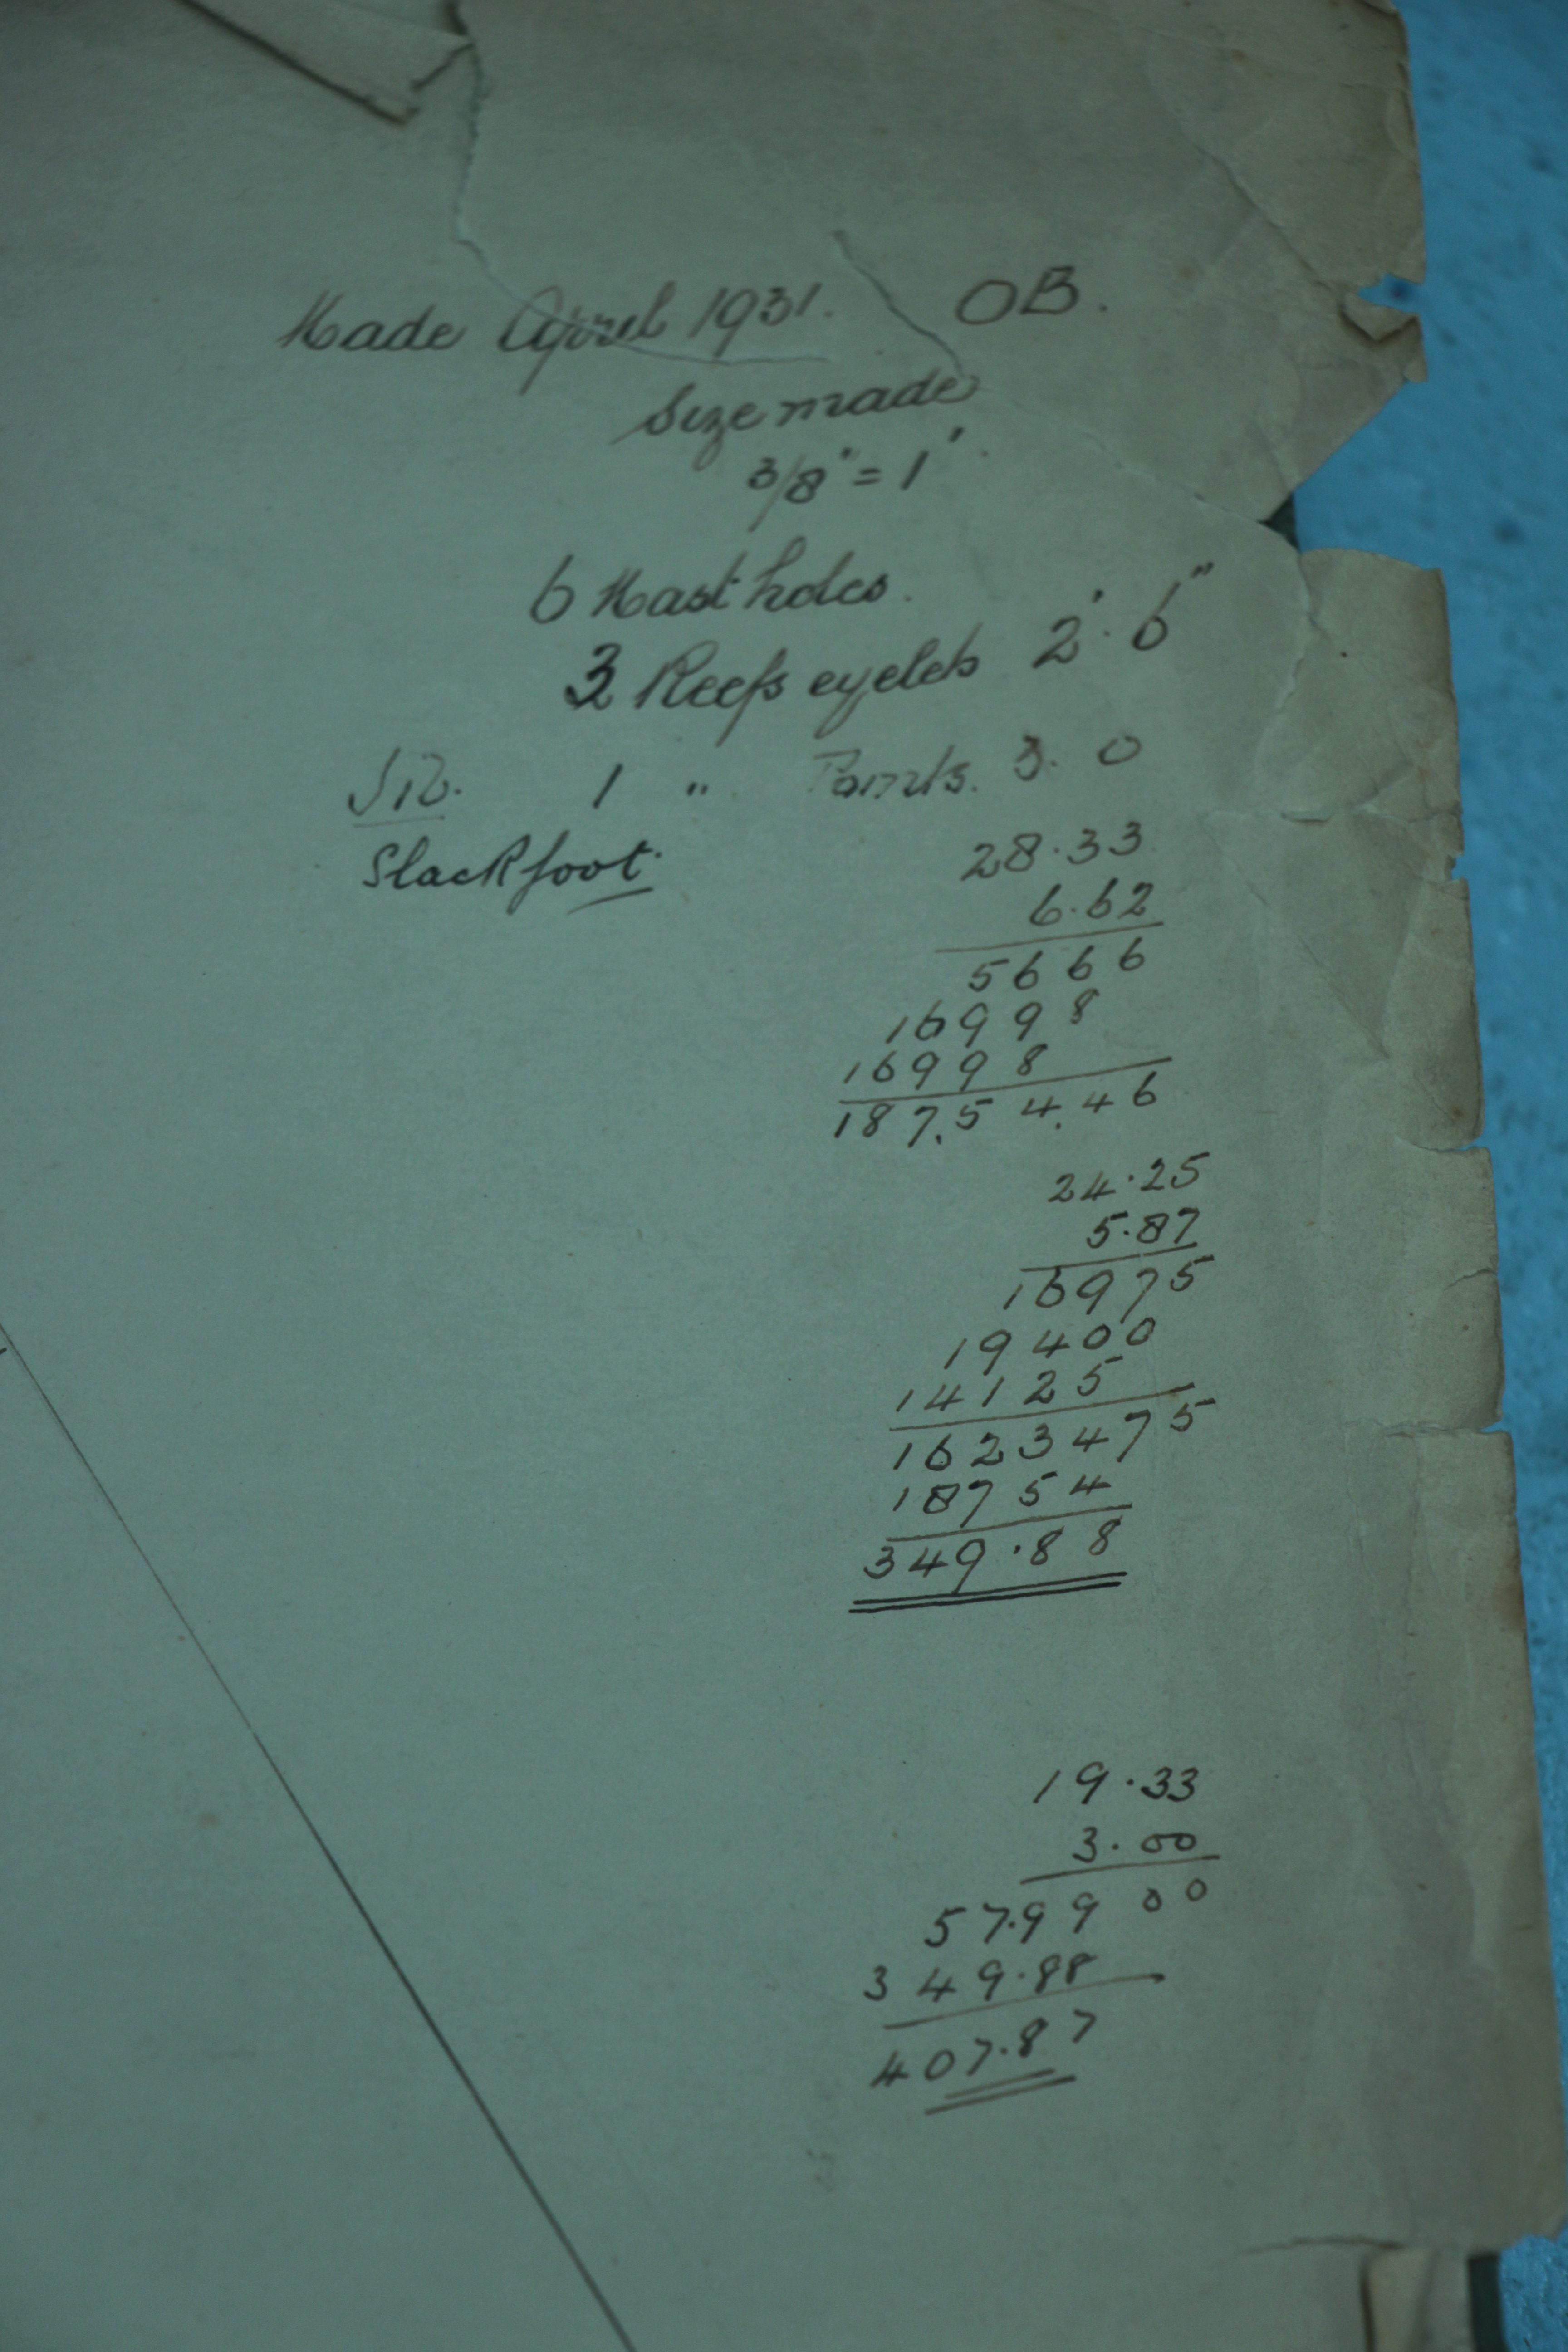 Made April 1931. OB.
Size made
3/8" = 1'.
6 Mast holes.
3 Reefs eyelets 2'. 6"
Jib. 1 " Points. 3. 0
Slack foot.
28.33
6.62
5666
16998
16998
187.54.46
24.25
5.87
16975
19400
14125
1623475
18754
349.88
19.33
3.00
57.9900
349.88
407.87